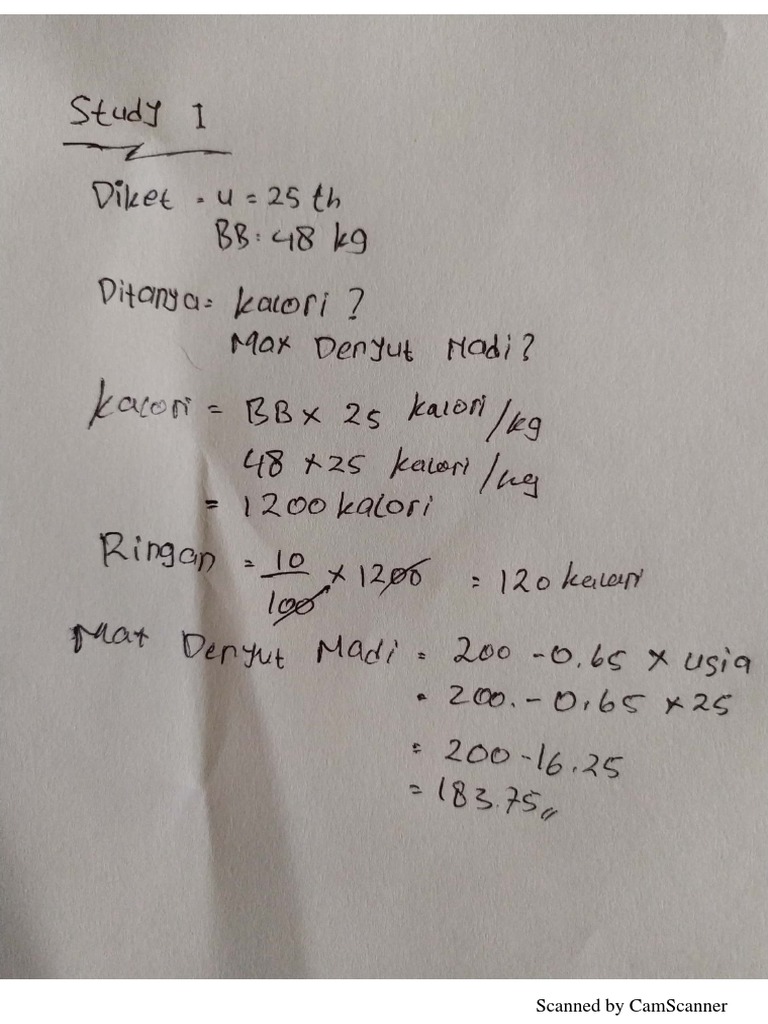 Study I
Diket = u = 25 th
BB: 48 kg
Ditanya = kalori ?
Max Denyut Nadi ?
Kalori = BB x 25 kalori/kg
48 x 25 kalori/kg
= 1200 kalori
Ringan = 10/100 x 1200 = 120 kalori
Max Denyut Nadi = 200 - 0.65 x usia
= 200. - 0.65 x 25
= 200 - 16.25
= 183.75,,
Scanned by CamScanner